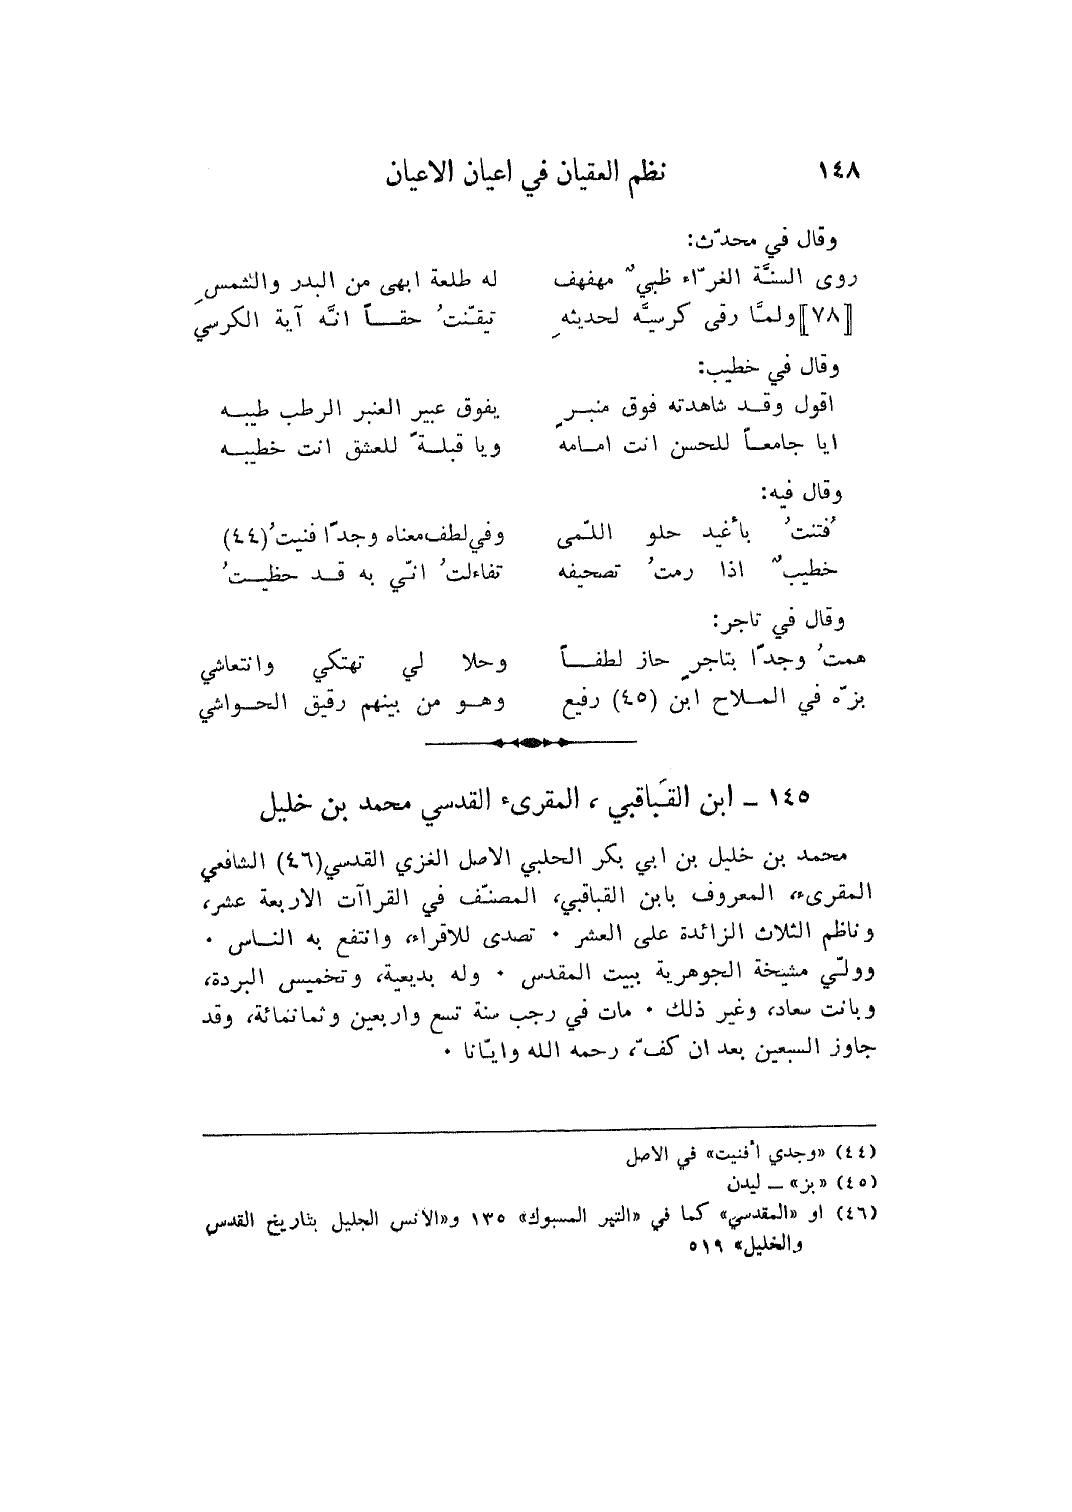 ١٤٨ نظم العقيان في اعيان الاعيان
وقال في محدّث:
روى السنَّة الغرّاء ظبيٌ مهفهف له طلعة ابهى من البدر والشمسِ
[٧٨] ولمَّا رقى كرسيَّه لحديثهِ تيقنتُ حقاً انَّه آية الكرسي
وقال في خطيب:
اقول وقد شاهدته فوق منبرٍ يفوق عبير العنبر الرطب طيبه
ايا جامعاً للحسن انت امامه ويا قبلةً للعشق انت خطيبه
وقال فيه:
فُتنتُ بأغيد حلو اللّمى وفي لطف معناه وجدًا فنيتُ(٤٤)
خطيبٌ اذا رمتُ تصحيفه تفاءلتُ انّي به قد حظيتُ
وقال في تاجر:
همتُ وجدًا بتاجرٍ حاز لطفاً وحلا لي تهتكي وانتعاشي
بزّه في الملاح ابن (٤٥) رفيع وهو من بينهم رقيق الحواشي
١٤٥ ـ ابن القَباقبي ، المقرىء القدسي محمد بن خليل
محمد بن خليل بن ابي بكر الحلبي الاصل الغزي القدسي(٤٦) الشافعي
المقرىء، المعروف بابن القباقبي، المصنّف في القراآت الاربعة عشر،
وناظم الثلاث الزائدة على العشر ٠ تصدى للاقراء، وانتفع به الناس ٠
وولّي مشيخة الجوهرية ببيت المقدس ٠ وله بديعية، وتخميس البردة،
وبانت سعاد، وغير ذلك ٠ مات في رجب سنة تسع واربعين وثمانمائة، وقد
جاوز السبعين بعد ان كفّ، رحمه الله وايّانا ٠
(٤٤) «وجدي أفنيت» في الاصل
(٤٥) «بز» ـ ليدن
(٤٦) او «المقدسي» كما في «التبر المسبوك» ١٣٥ و«الانس الجليل بتاريخ القدس
والخليل» ٥١٩